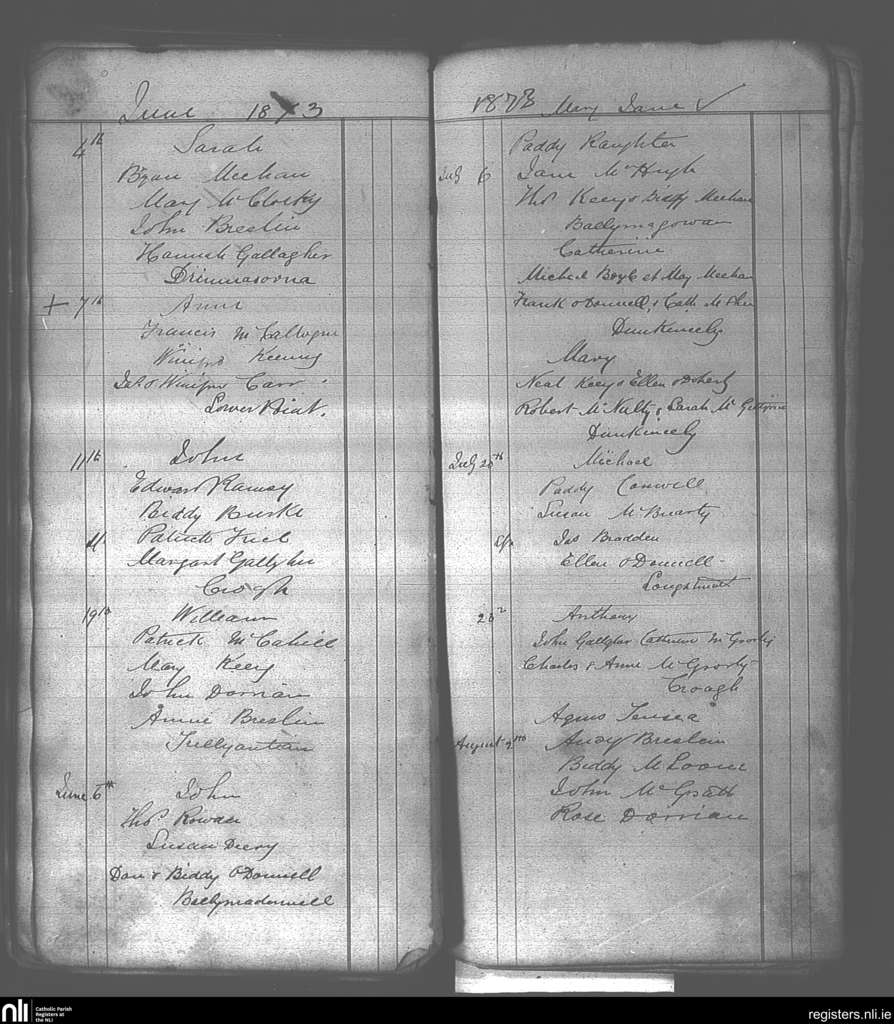 June 1873
4th Sarah
Bryan Meehan
Mary McClosky
John Breslin
Hannah Gallagher
Drimnasorna
+ 7th Anne
Francis
Winifrd Keeney
Jas & Winifrd Carr
Lower Point.
11th John
Edward Ramsey
Biddy Bourke
Patrick Friel
Margaret Gallgher
Crogh
19th William
Patrick McCahill
Mary Keeny
John Dorrian
Annie Breslin
June 6th John
Thos Rowan
Susan Deery
Dan & Biddy O'Donnell
Ballymadonnell
1873 Mary Jane ✓
Paddy Raughter
July 6 Jane McHugh
Thos Keeny & Biddy Meehan
Ballymagowan
Catherine
Michael Boyle et May Meehan
Frank O'Donnell & Cath
Dunkineely
Mary
Neal Keeny & Ellen O'Doherty
Robert McNulty & Sarah
Dunkineely
July 20th Michael
Paddy Conwell
Susan McBrearty
Sps Jas Bradden
Ellen O'Donnell
Anthony
John Gallgher Catherine McGroorty
Charles & Anne McGroorty
Croagh
Agnes
August 2nd Andy Breslin
Biddy McLoone
John McGrath
Rose Dorrian
nli Catholic Parish Registers at the NLI
registers.nli.ie